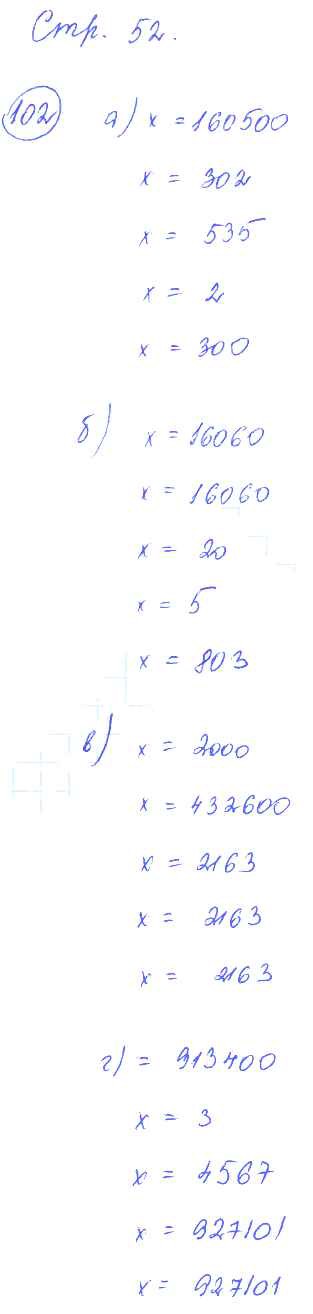 Стр. 52.
102 а) x = 160500
x = 302
x = 535
x = 2
x = 300
б) x = 16060
x = 16060
x = 20
x = 5
x = 803
в) x = 2000
x = 432600
x = 2163
x = 2163
x = 2163
г) = 913400
x = 3
x = 4567
x = 927101
x = 927101